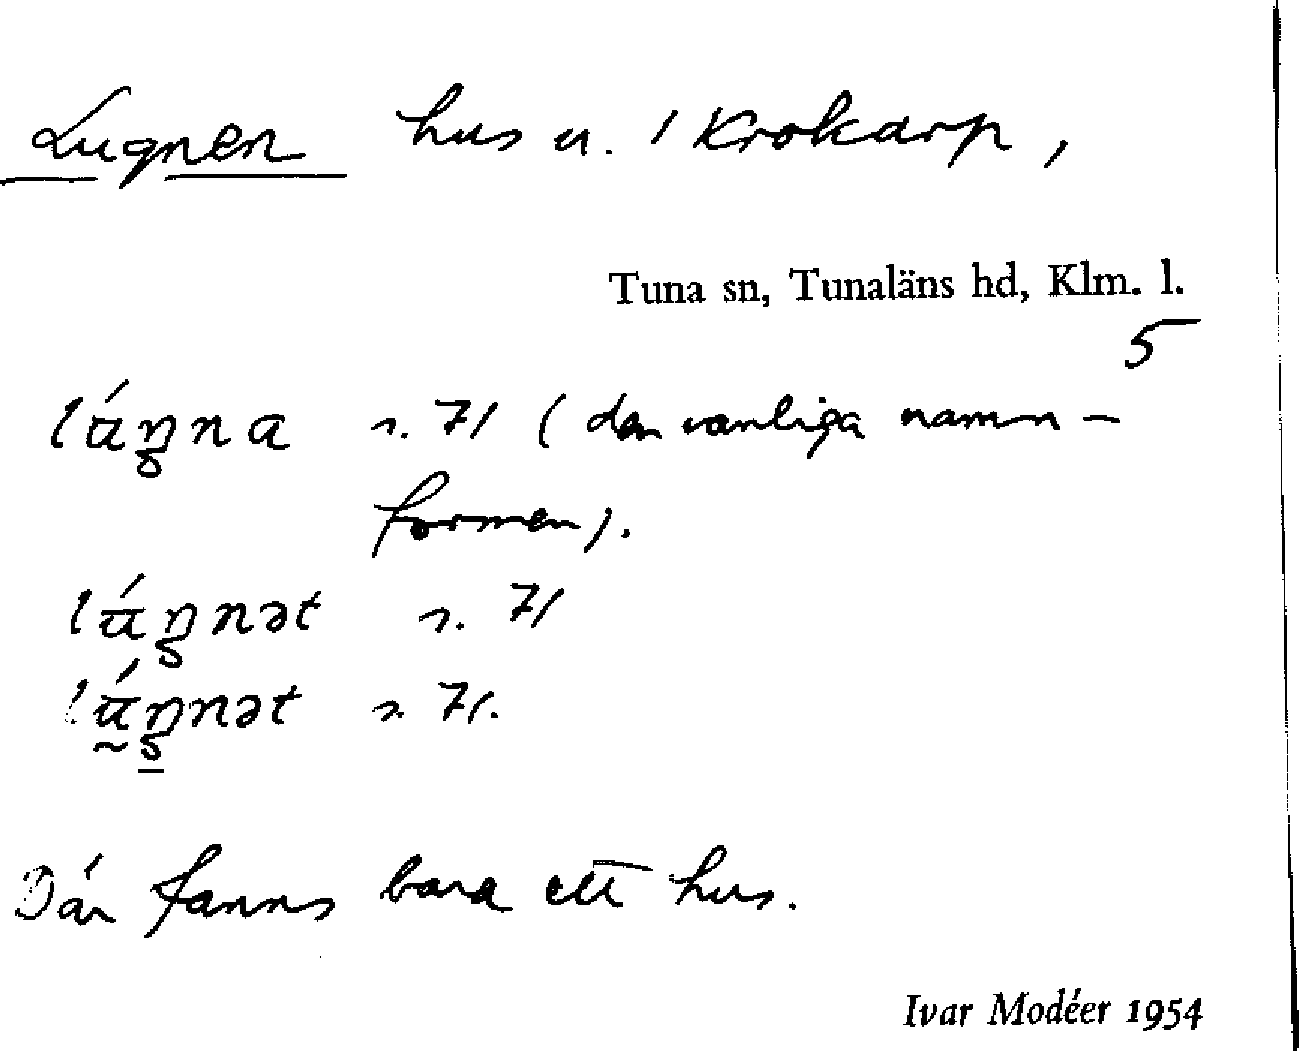 Lugnen hus u. / Krokarp,
Tuna sn, Tunaläns hd, Klm. l.
5
s. 71 (den vanliga namn-
formen).
s. 71
s. 71.
Där fanns bara ett hus.
Ivar Modéer 1954